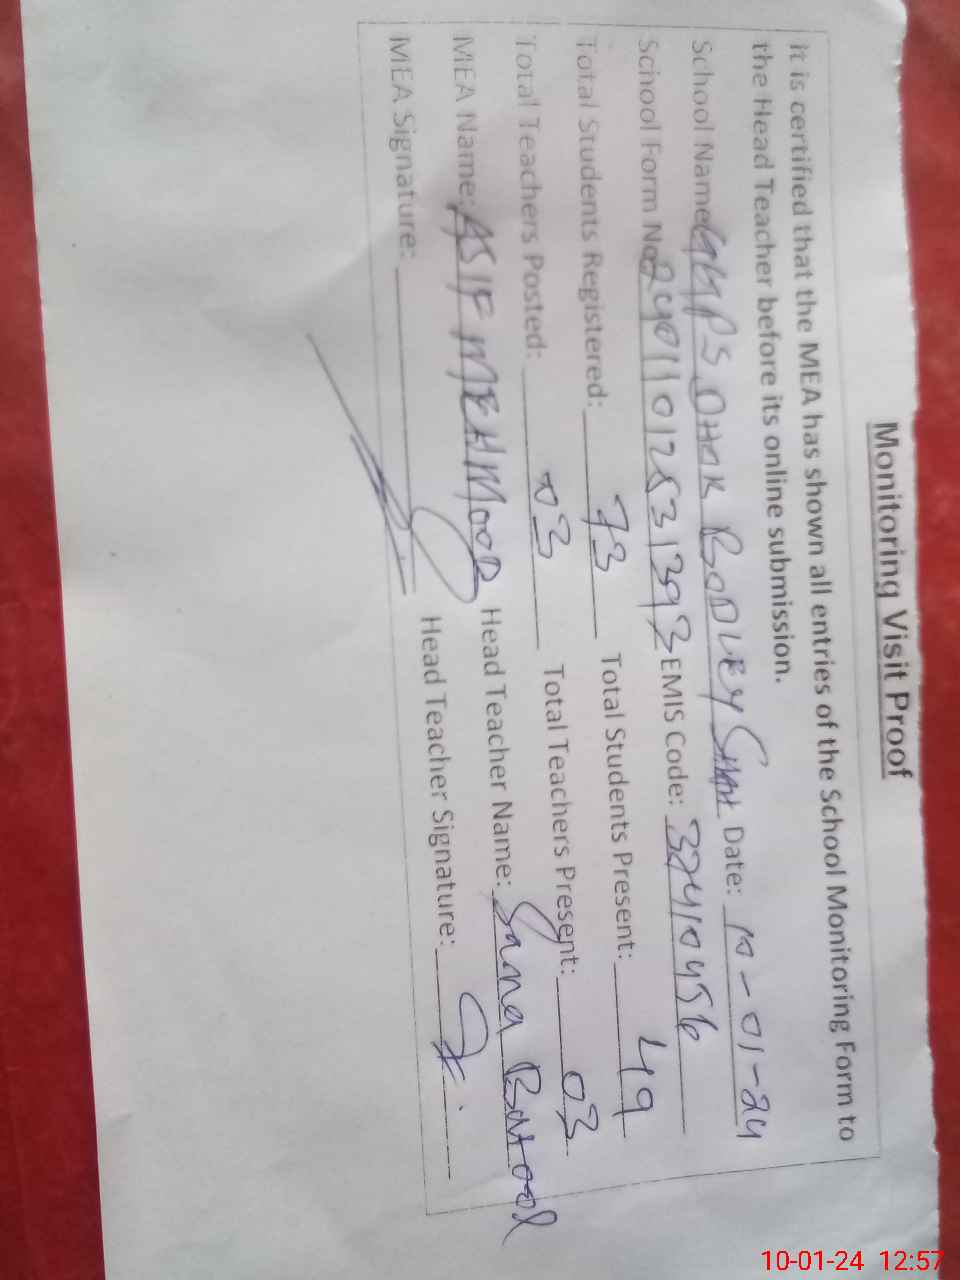 Monitoring Visit Proof
It is certified that the MEA has shown all entries of the School Monitoring Form to
the Head Teacher before its online submission.
School Name: GMPS DHAK BODLEY Date: 10-01-24
School Form No: 24011012531393 EMIS Code: 32410456
Total Students Registered: 73 Total Students Present: 49
Total Teachers Posted: 03 Total Teachers Present: 03
MEA Name: ASIF MEHMOOD Head Teacher Name: Sana Batool
MEA Signature: Head Teacher Signature:
10-01-24 12:57